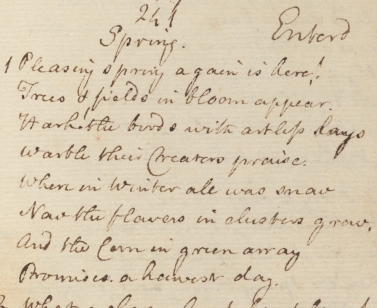 241
Spring. Enterd
1 Pleasing spring again is here!
Trees & fields in bloom appear.
Hark the birds with artless lays
Warble their Creators praise.
Where in Winter all was snow
Now the flowers in clusters grow,
And the Corn in green array
Promises a harvest day.